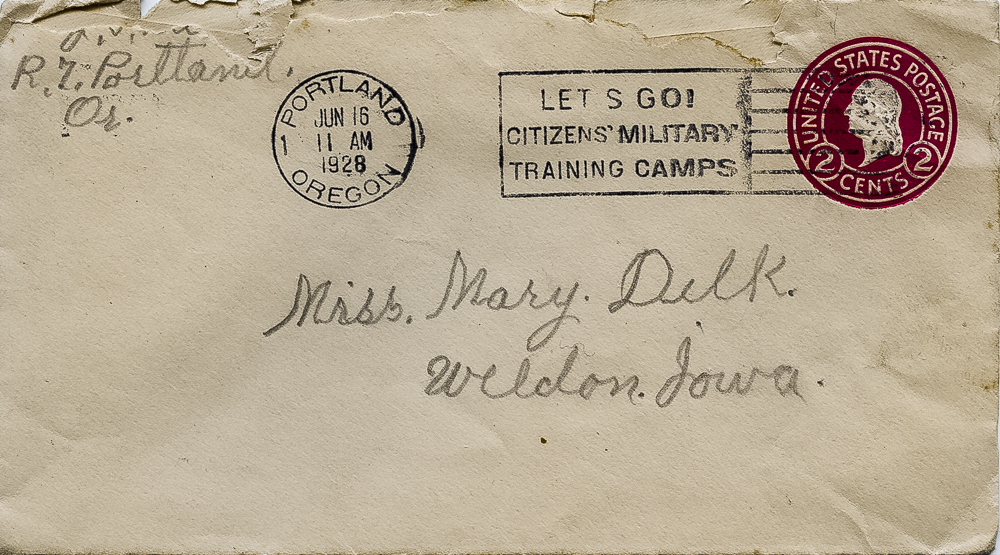 R. 7. Portland.
Or.
PORTLAND
JUN 16
11 AM
1928
1
OREGON
LET'S GO!
CITIZENS' MILITARY
TRAINING CAMPS
UNITED STATES POSTAGE
2 CENTS 2
Miss. Mary. Delk.
Weldon. Iowa.